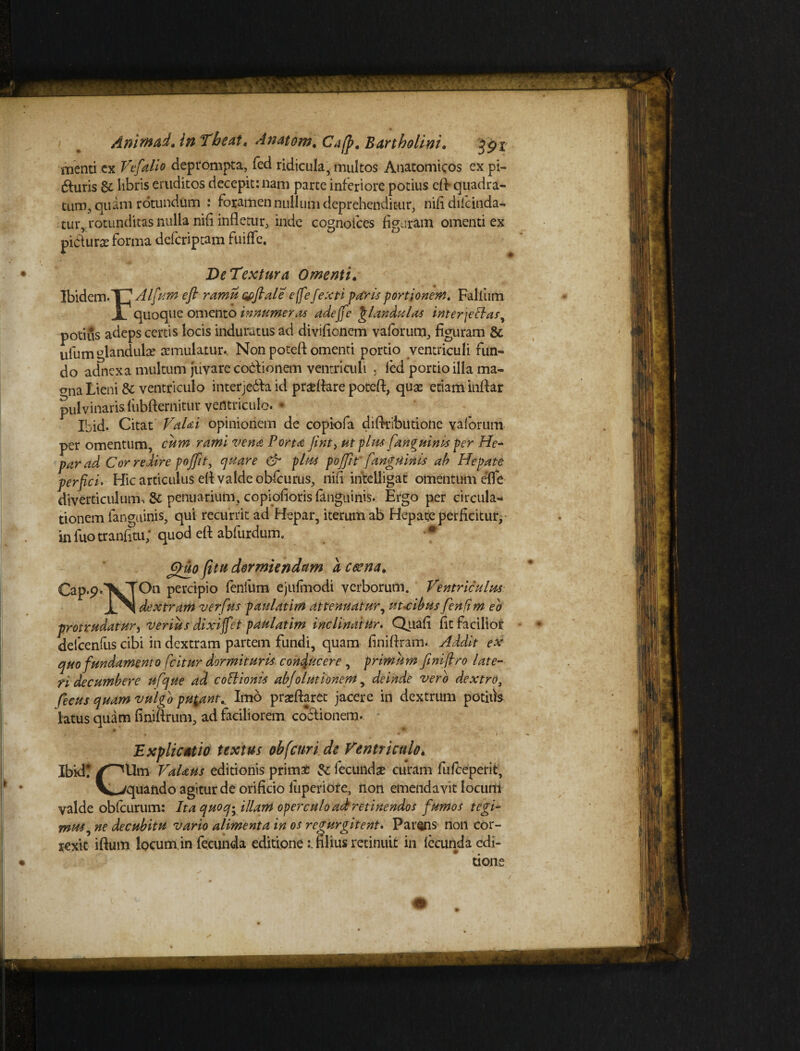 Animad. in Theat. Anatom. Casp. Bartholini. 391
menti ex Vesalio deprompta, sed ridicula, multos Anatomicos ex pi-
cturis & libris eruditos decepit: nam parte inferiore potius est quadra-
tum, quàm rotundum : foramen nullum deprehenditur, nisi discinda-
tur, rotunditas nulla nisi infletur, inde cognosces figuram omenti ex
picturæ forma descriptam fuisse.
De Textura Omenti.
Ibidem. EAlsum est ramū costalē esse sexti paris portionem. Falsum
quoque omento innumeras adesse glandulas interjectas,
potius adeps certis locis induratus ad divisionem vasorum, figuram &
usum glandulæ æmulatur. Non potest omenti portio ventriculi fun-
do adnexa multum juvare coctionem ventriculi , sed portio illa ma-
gna Lieni & ventriculo interjecta id præstare potest, quæ etiam instar
pulvinaris substernitur ventriculo.
Ibid. Citat Valæi opinionem de copiosa distributione vasorum
per omentum, cùm rami venæ Portæ sint, ut plus sanguinis per He-
par ad Cor redire possit, quare & plus possit sanguinis ab Hepate
perfici. Hic articulus est valde obscurus, nisi intelligat omentum esse
diverticulum, & penuarium, copiosioris sanguinis. Ergo per circula-
tionem sanguinis, qui recurrit ad Hepar, iterum ab Hepate perficitur,
in suo transitu, quod est absurdum.
Quo situ dormiendum à cœna.
Cap.9. NOn percipio sensum ejusmodi verborum. Ventriculus
dextram versus paulatim attenuatur, ut cibus sensim eo
protrudatur, verius dixisset paulatim inclinatur. Quasi sit facilior
descensus cibi in dextram partem fundi, quam sinistram. Addit ex
quo fundamento scitur dormituris conducere , primùm sinistro late-
ri decumbere usque ad coctionis absolutionem , deinde vero dextro,
secus quam vulgò putant. Imò præstaret jacere in dextrum potiùs
latus quàm sinistrum, ad faciliorem coctionem.
Explicatio textus obscuri de Ventriculo.
Ibid. CUm Valæus editionis primæ & secundæ curam susceperit,
quando agitur de orificio superiore, non emendavit locum
valde obscurum: Ita quoq; illam operculo ad retinendos fumos tegi-
mus, ne decubitu vario alimenta in os regurgitent. Parens non cor-
rexit istum locum in secunda editione : filius retinuit in secunda edi-
tione